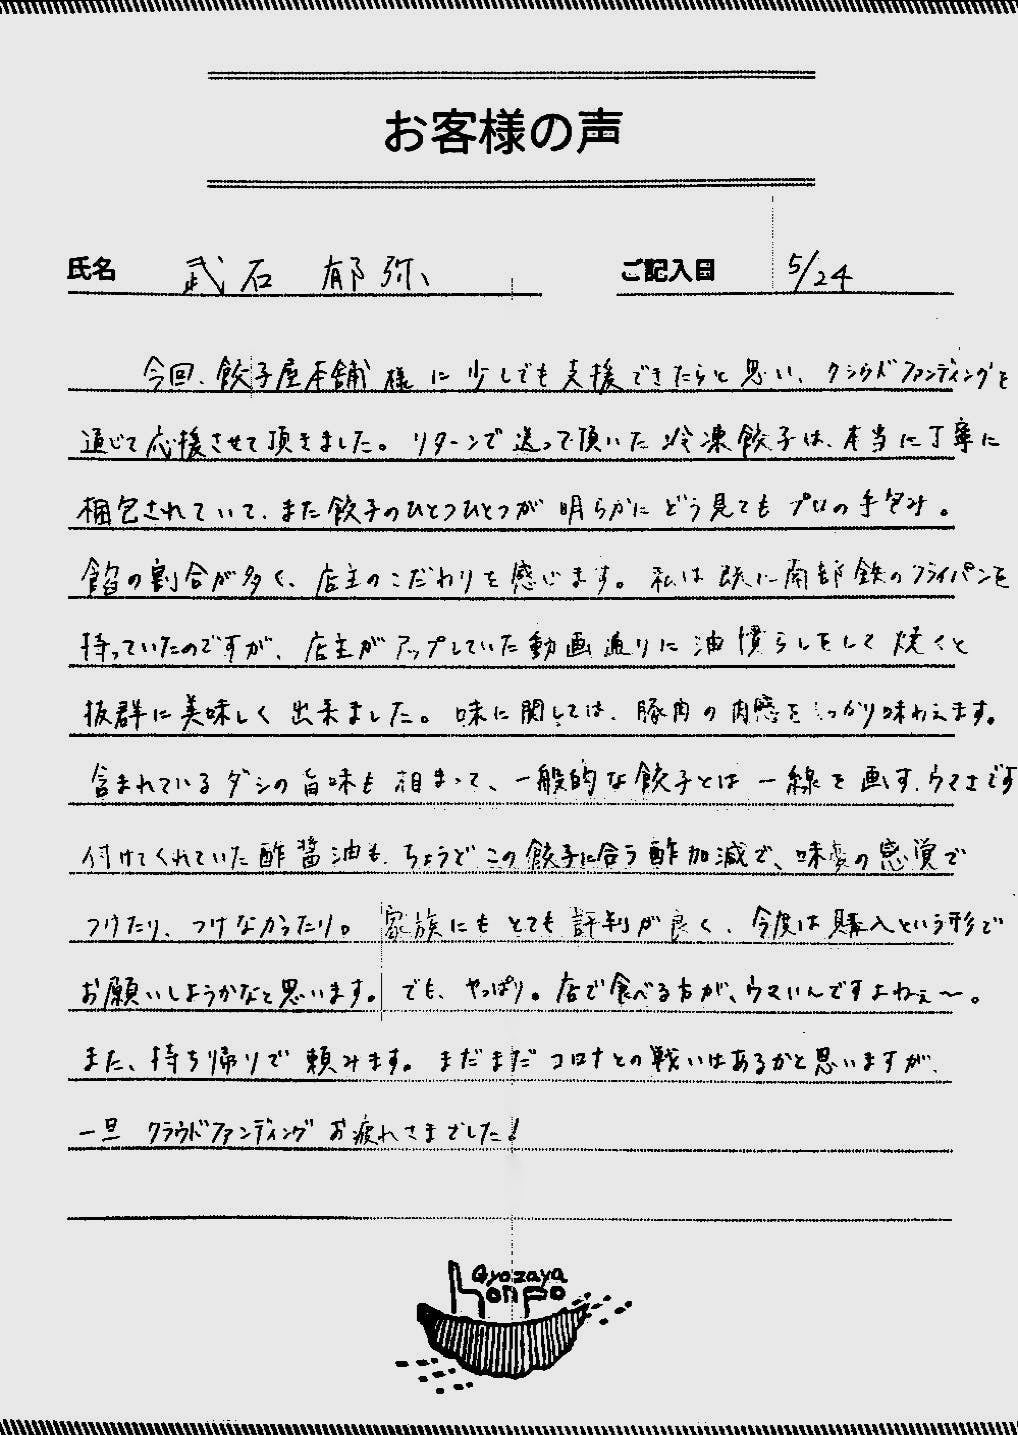 お客様の声
氏名 武石 郁弥 ご記入日 5/24
今回、餃子屋本舗様に少しでも支援できたらと思い、クラウドファンディングを
通じて応援させて頂きました。リターンで送って頂いた冷凍餃子は、本当に丁寧に
梱包されていて、また餃子のひとつひとつが明らかにどう見てもプロの手包み。
餡の割合が多く、店主のこだわりを感じます。私は既に南部鉄のフライパンを
持っていたのですが、店主がアップしていた動画通りに油慣らしをして焼くと
抜群に美味しく出来ました。味に関しては、豚肉の肉感をしっかり味わえます。
含まれているダシの旨味も相まって、一般的な餃子とは一線を画す、ウマさです
付けてくれていた酢醤油も、ちょうどこの餃子に合う酢加減で、味変の感覚で
つけたり、つけなかったり。家族にもとても評判が良く、今度は購入という形で
お願いしようかなと思います。でも、やっぱり。店で食べる方が、ウマいんですよねぇ〜。
また、持ち帰りで頼みます。まだまだコロナとの戦いはあるかと思いますが、
一旦 クラウドファンディングお疲れさまでした!
Gyozaya
honpo